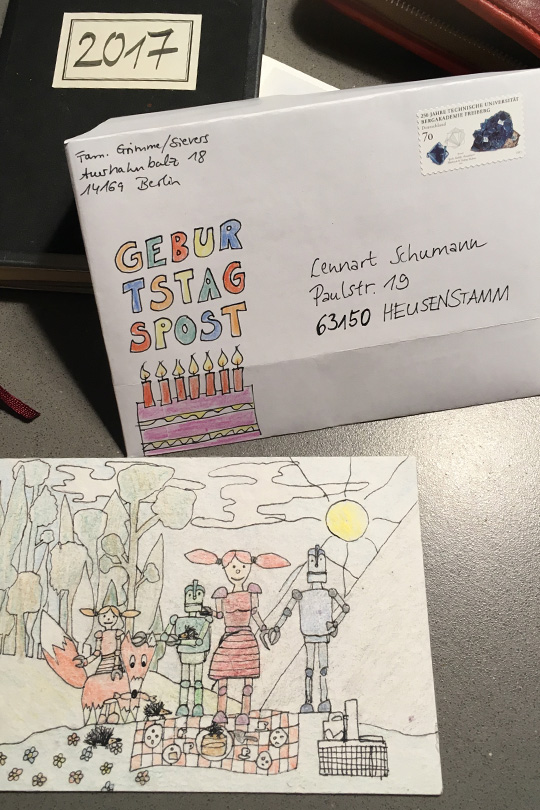 2017
Fam. Grimme/Sievers
Auerhahnbalz 18
14169 Berlin
250 JAHRE TECHNISCHE UNIVERSITÄT
BERGAKADEMIE FREIBERG
Deutschland
70
GEBUR
TSTAG
SPOST
Lennart Schumann
Paulstr. 19
63150 HEUSENSTAMM